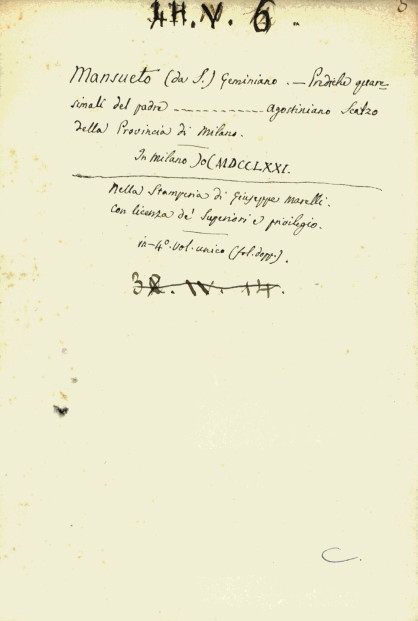 14.V.6.
Mansueto (da S.) Geminiano. — Prediche quare=
simali del padre ------------ Agostiniano Scalzo
della Provincia di Milano.
In Milano )o( MDCCLXXI.
Nella Stamperia di Giuseppe Marelli.
con licenza de' Superiori e privilegio.
in-4º. vol. unico (frl. dopp.).
32. IV. 14.
C.